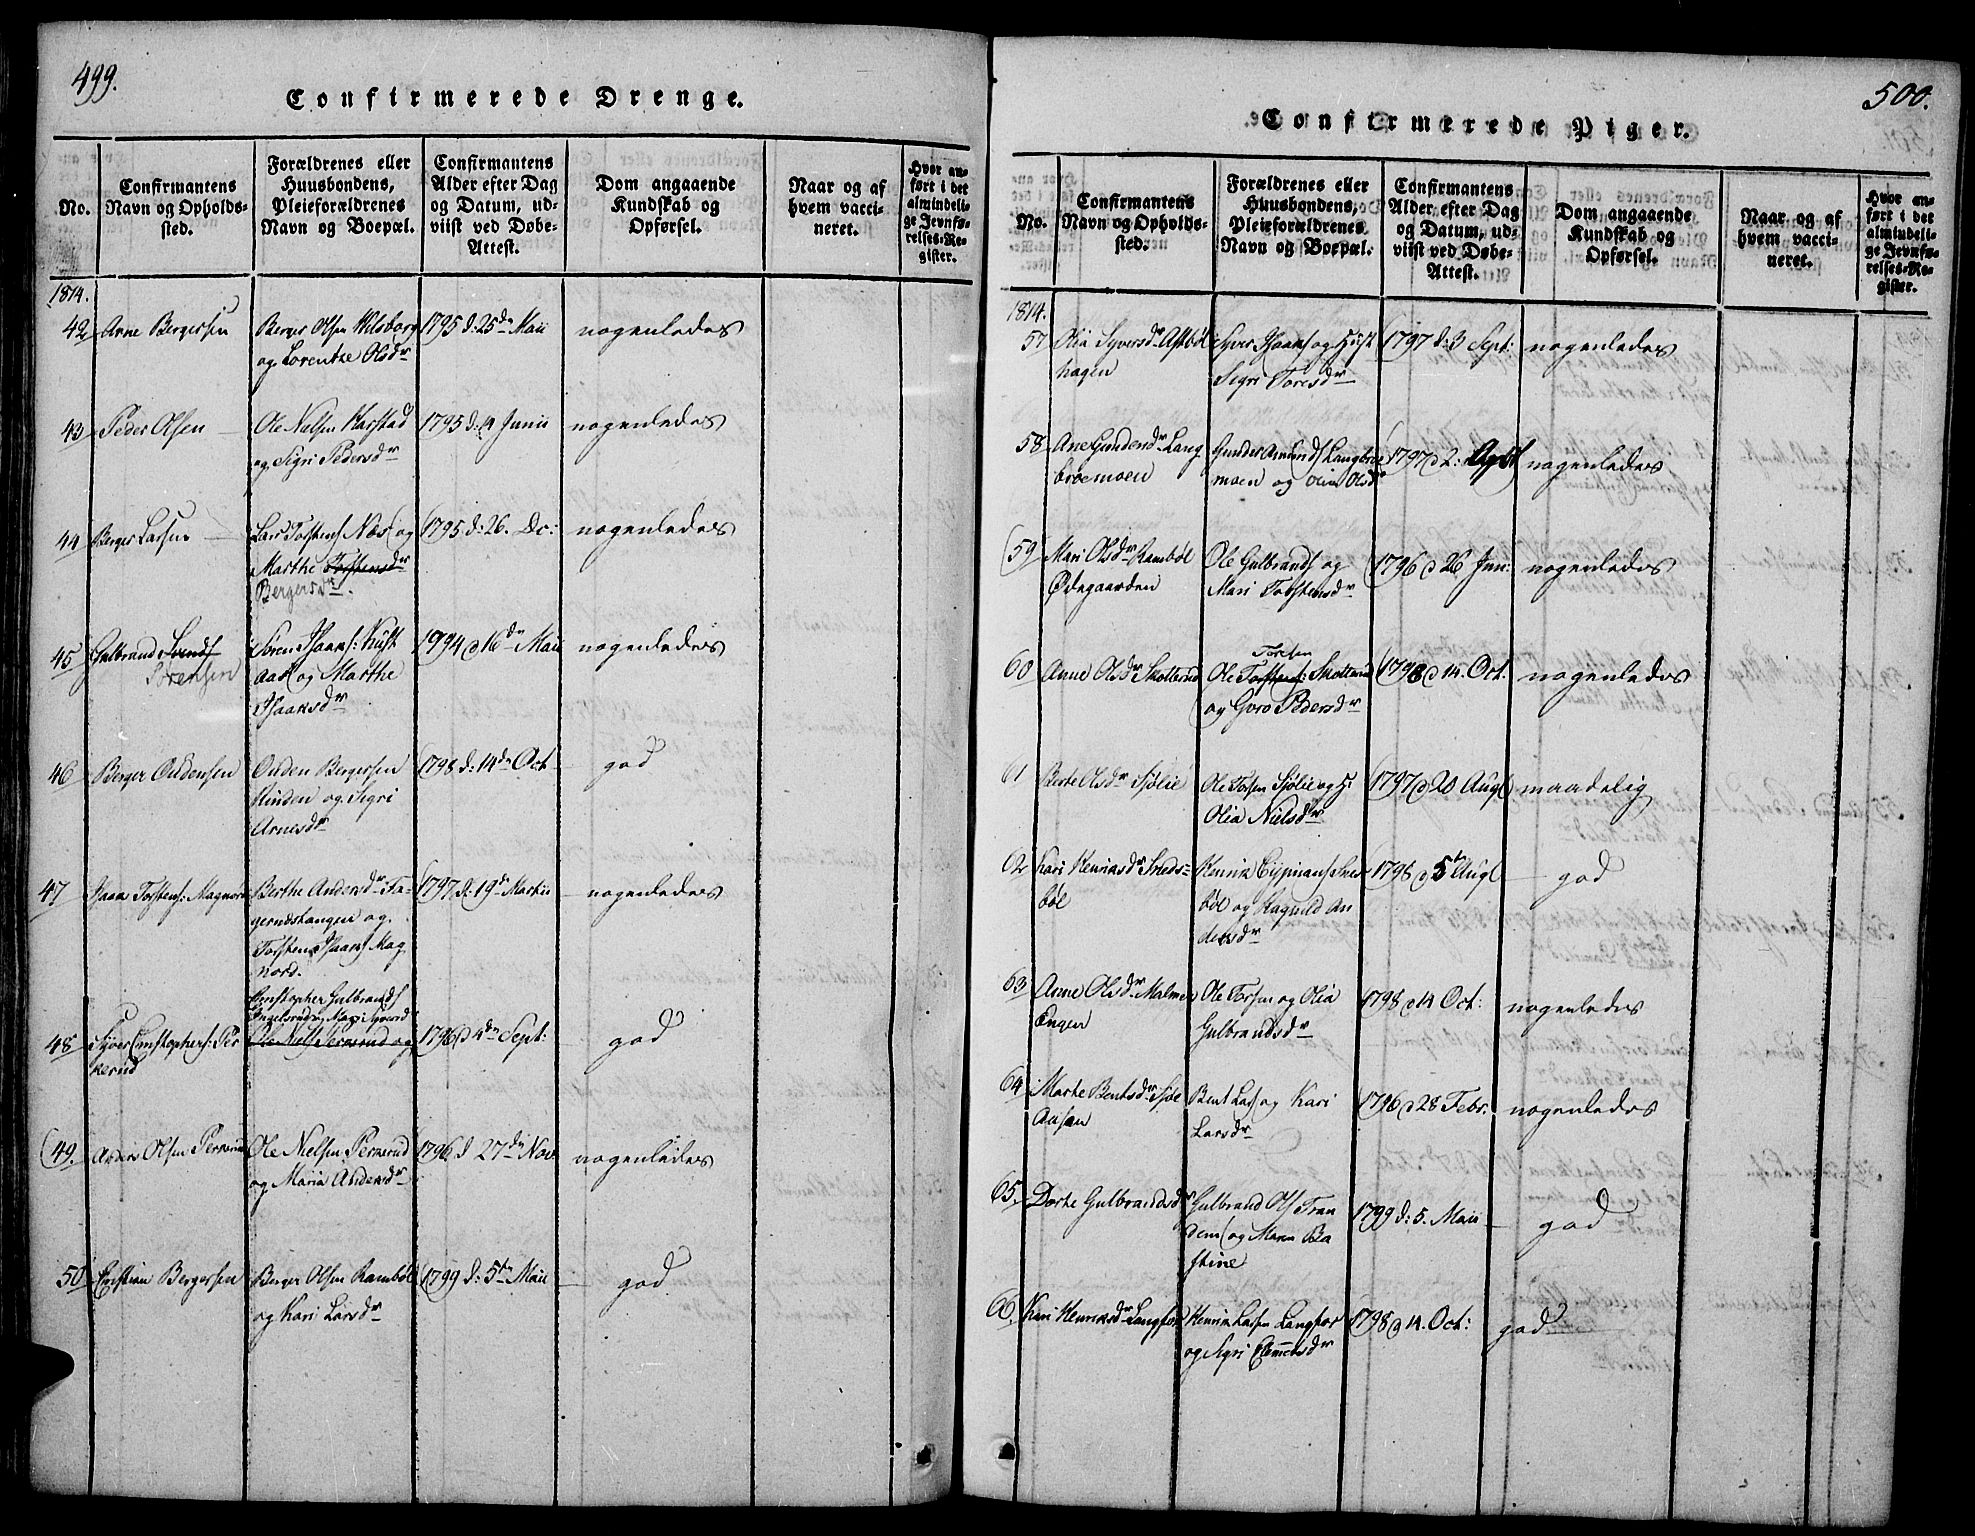 499.
Confirmerede Drenge.
No.
Confirmantens
Navn og Opholds-
sted.
Forældrenes eller
Huusbondens,
Pleieforældrenes
Navn og Boepæl.
Confirmantens
Alder efter Dag
og Datum, ud-
viist ved Døbe-
Attest.
Dom angaaende
Kundskab og
Opførsel.
Naar og af
hvem vacci-
neret.
Hvor an-
ført i det
almindeli-
ge Jevnfø-
relses-Re-
gister.
1814.
42 Arne Bergersen
Berger Olsen Wilsborg
og Lorentze Olsdr
1795 d: 25de Maii
nogenledes
43 Peder Olsen
Ole Nielsen Harstad
og Sigri Pedersdr
1795 d: 14 Junii
nogenledes
44 Berger Larsen
Lars Torstens Næs og
Marthe Torstensdr
Bergersdr.
1795 d: 26. Dc:
nogenledes
45 Gulbrand Svends
Sørensen
Søren Isaans: Kust
aas og Marthe
Isaaksdr
1794 d 16de Maii
nogenledes
46 Berger Oudensen
Ouden Bergersen
Rinden og Sigri
Arnesdr
1798 d: 14de Oct
god
47 Isaak Torstens: Magnord
Berthe Andersdr Fa-
gernæstangen og
Torsten Isaans Mag
nord.
1797 d: 19de Martii
nogenledes
48 Syver Christophers: Per
kerud
Christopher Gulbrands
Engelsrud og Mari Syversd
Ole Niels Perkerud og
1796 d 4de Sept:
god
49. Anders Olsen Perkerud
Ole Nielsen Perkerud
og Maria Andersdr
1796 d 27de Nov
nogenledes
50 Christian Bergersen
Berger Olsen Rambøl
og Kari Larsdr
1799 d: 5te Maii
god
500.
Confirmerede Piger.
No.
Confirmantens
Navn og Opholds-
sted.
Forældrenes eller
Huusbondens,
Pleieforældrenes
Navn og Boepæl.
Confirmantens
Alder efter Dag
og Datum, ud-
viist ved Døbe-
Attest.
Dom angaaende
Kundskab og
Opførsel.
Naar og af
hvem vacci-
neret.
Hvor an-
ført i det
almindeli-
ge Jevnfø-
relses-Re-
gister.
1814.
57 Olia Syversdr Astbøl
hagen
Syver Isaans og
Sigri Toresdr
1797 d: 3 Sept:
nogenledes
58 Ane Gundersdr Lang
broemoen
Gunder Amunds Langbroe
moen og Olia Olsdr
1797 d 2: Agst
nogenledes
59 Mari Olsdr Rambøl
Ødegaarden
Ole Gulbrands og
Mari Torstensdr
1796 d 26 Jun:
nogenledes
60 Anne Olsdr Skotterud
Toresen
Ole Torstens: Skotterud
og Goro Pedersdr
1798 d 14. Oct.
nogenledes
61 Berte Olsdr Sjølie
Ole Torsen Sjølie og H
Olia Nielsdr
1797 d 20 Augs
maadelig
62 Kari Henriksdr Sneds-
bøl
Henrik Cyprians Sneds
bøl og Ragnild An
dersdr
1798 d 5te Augs
god
63 Anne Olsdr Malmer
Engen
Ole Torsen og Olia
Gulbrandsdr
1798 d 14 Oct:
nogenledes
64 Marte Bentsdr Sjøe
Aasen
Bent Lars og Kari
Larsdr
1796 d 28 Febr.
nogenledes
65. Dorte Gulbrandsdr
Gulbrand Ols Tran
dem og Maren Ba
stine
1799 d: 5. Maii
god
66. Kari Henriksdr Langfor
Henrik Larsen Langfor
og Sigri Clemetsdr
1798 d 14. Oct:
god